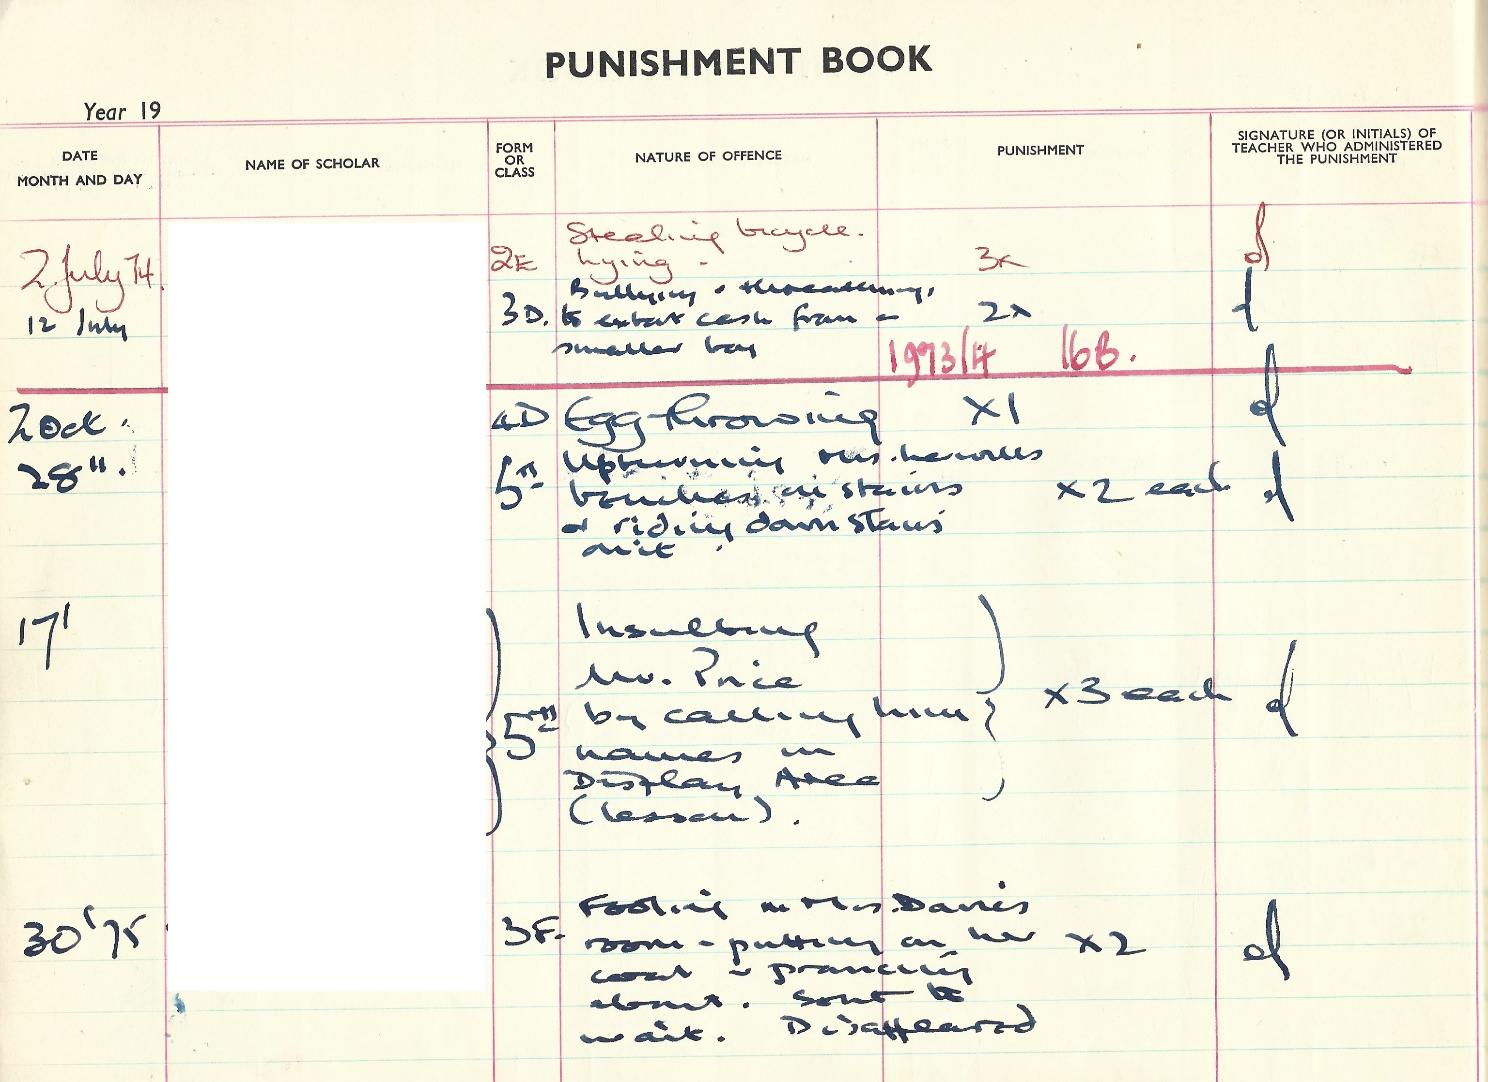 PUNISHMENT BOOK
Year 19
DATE
MONTH AND DAY
NAME OF SCHOLAR
FORM
OR
CLASS
NATURE OF OFFENCE
PUNISHMENT
SIGNATURE (OR INITIALS) OF
TEACHER WHO ADMINISTERED
THE PUNISHMENT
2 July 74. 2E Stealing bicycle.
lying. 3x
12 July 3D. Bullying & threatening,
to extort cash from a 2x
smaller boy
1973/4 16B.
2 Oct. 4D Egg-throwing x1
28". 5th Upturning Mrs.
benches on stairs x2 each
& riding down stairs
on it.
17' 5th Insulting
Mr. Price
by calling him x3 each
names in
Display Area
(lesson).
30 ' 75 3F. Fooling in Mrs. Davies
room - putting on her x2
coat & prancing
about. Sent to
wait. Disappeared